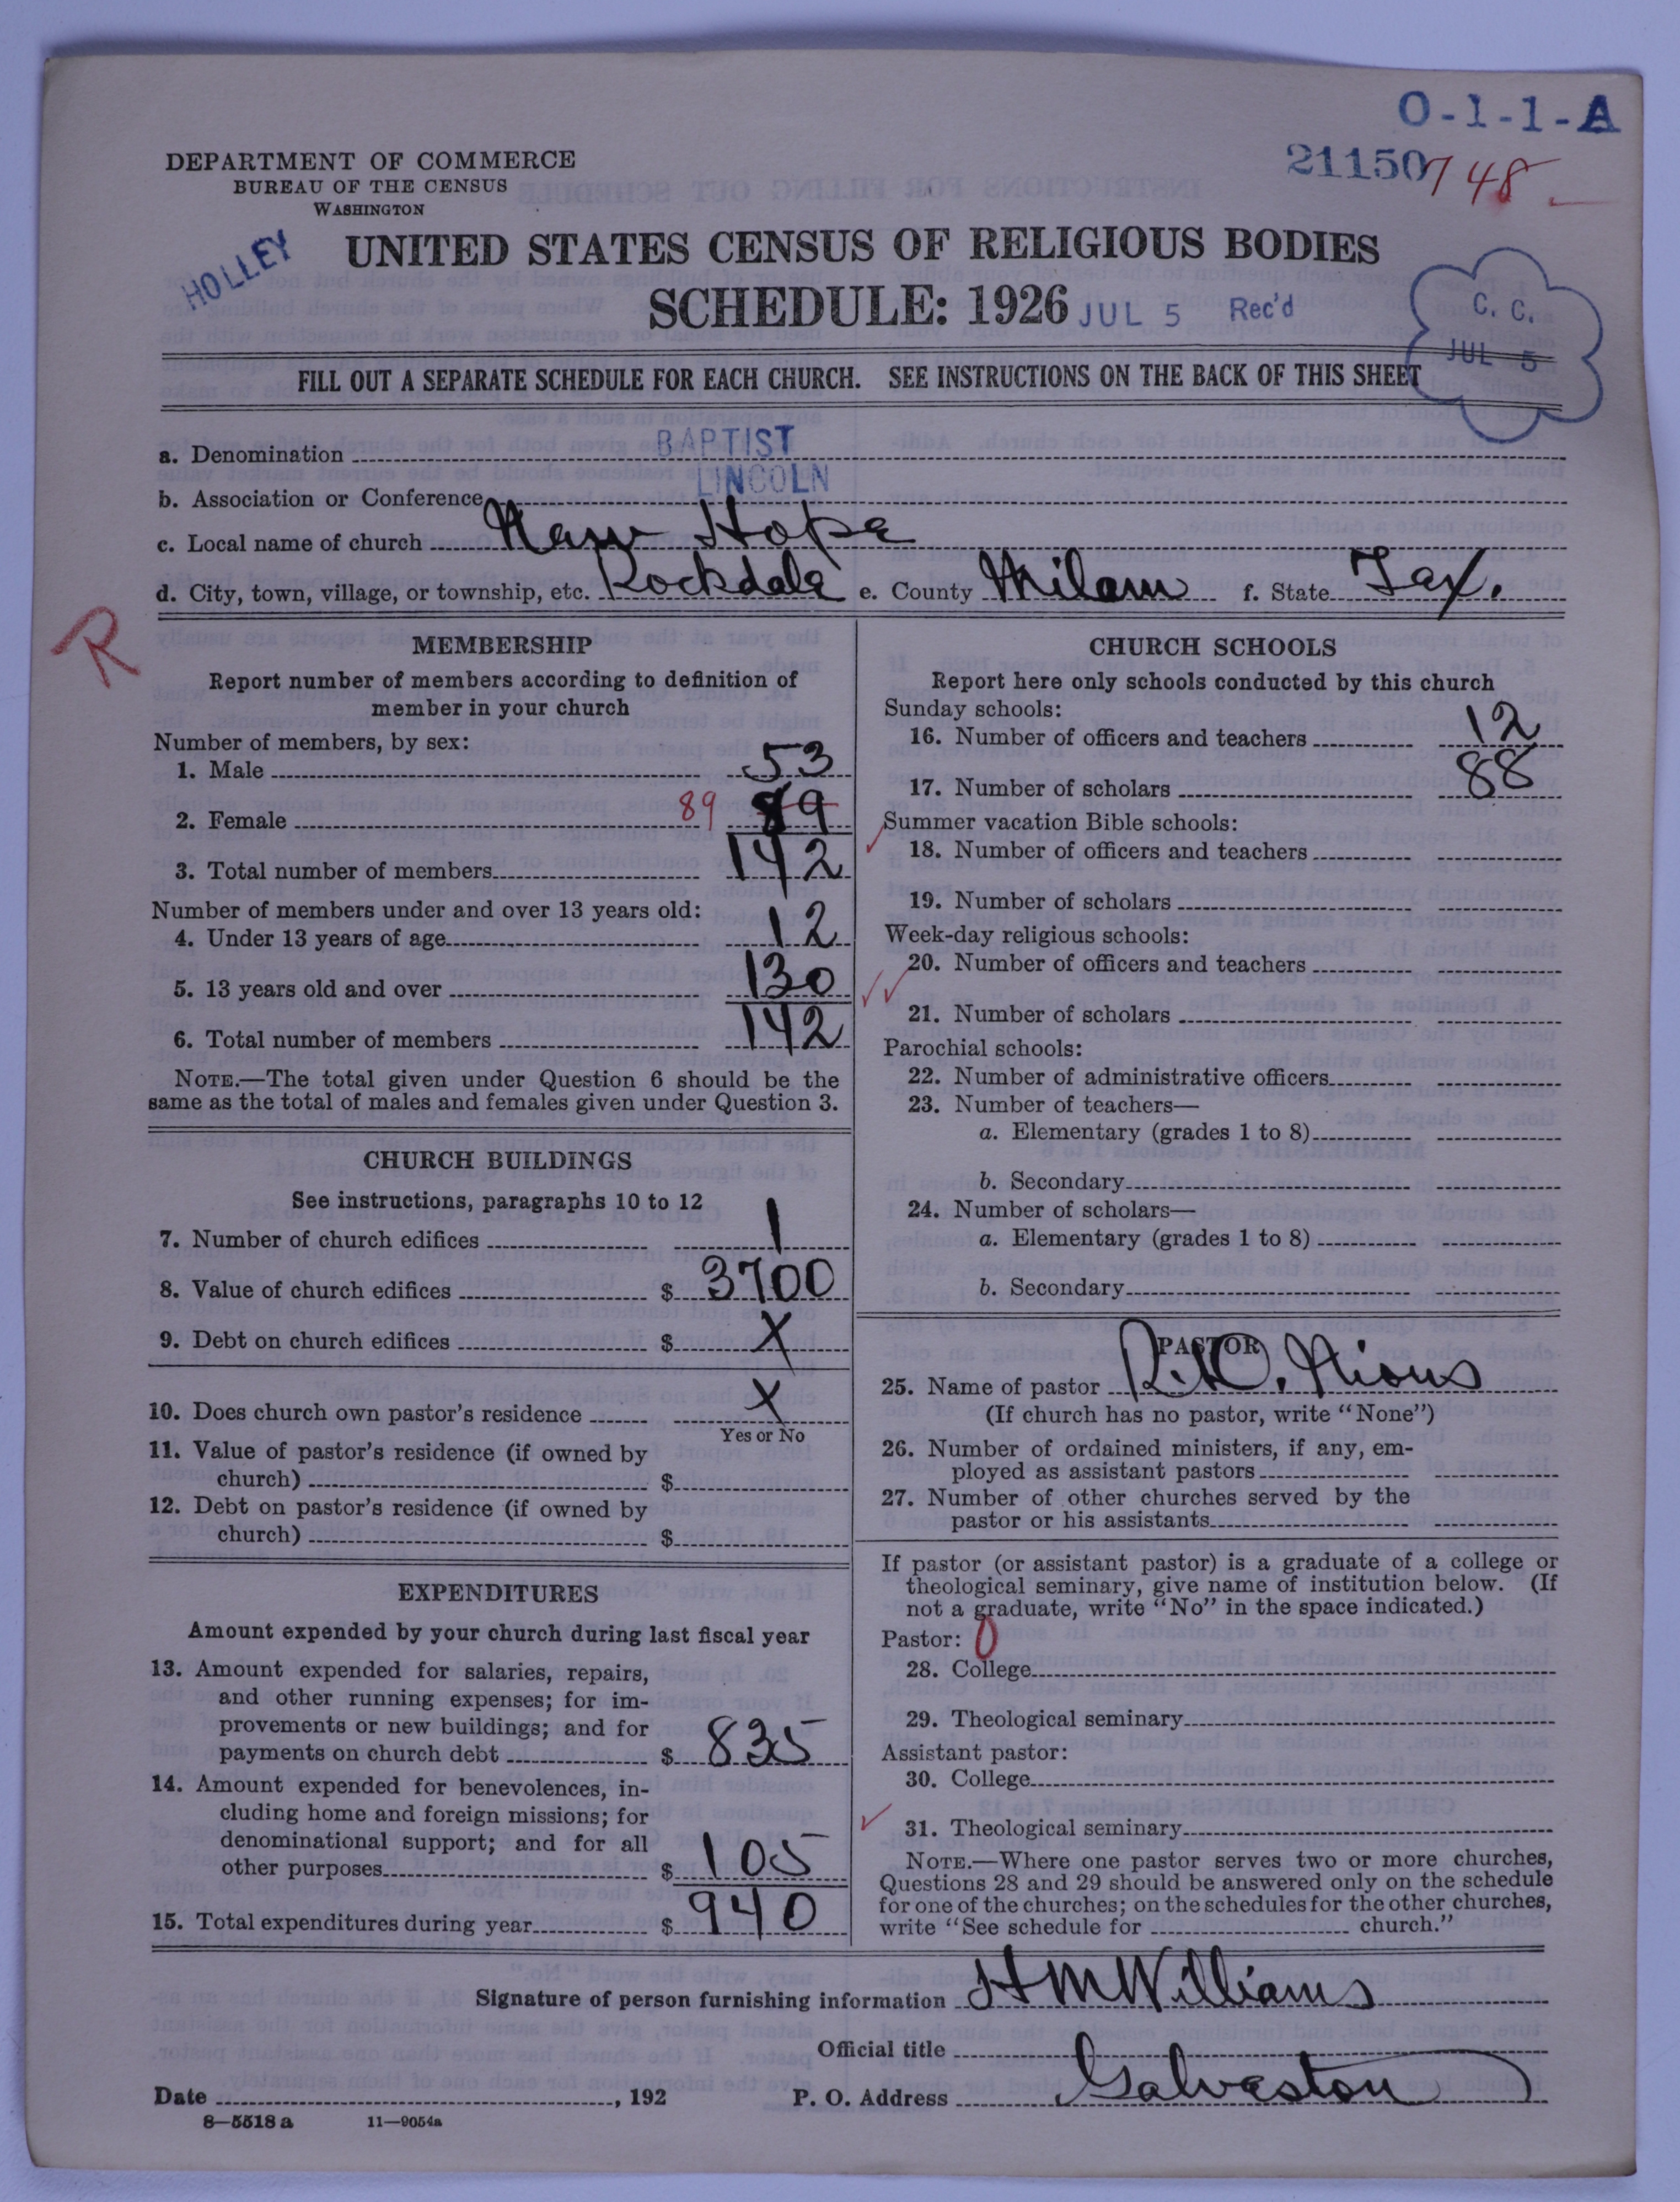 O-1-1-A
DEPARTMENT OF COMMERCE
BUREAU OF THE CENSUS
WASHINGTON
21150 748
HOLLEY
UNITED STATES CENSUS OF RELIGIOUS BODIES
SCHEDULE: 1926 JUL 5 Rec'd
C. C.
JUL 5
FILL OUT A SEPARATE SCHEDULE FOR EACH CHURCH. SEE INSTRUCTIONS ON THE BACK OF THIS SHEET
a. Denomination BAPTIST
b. Association or Conference LINCOLN
c. Local name of church New Hope
d. City, town, village, or township, etc. Rockdale e. County Milam f. State Tex.
R
MEMBERSHIP
Report number of members according to definition of
member in your church
Number of members, by sex:
1. Male 53
2. Female 89 89
3. Total number of members 142
Number of members under and over 13 years old:
4. Under 13 years of age 12
5. 13 years old and over 130
6. Total number of members 142
NOTE.—The total given under Question 6 should be the
same as the total of males and females given under Question 3.
CHURCH BUILDINGS
See instructions, paragraphs 10 to 12
7. Number of church edifices 1
8. Value of church edifices $ 3700
9. Debt on church edifices $ X
10. Does church own pastor's residence X
Yes or No
11. Value of pastor's residence (if owned by
church) $
12. Debt on pastor's residence (if owned by
church) $
EXPENDITURES
Amount expended by your church during last fiscal year
13. Amount expended for salaries, repairs,
and other running expenses; for im-
provements or new buildings; and for
payments on church debt $ 835
14. Amount expended for benevolences, in-
cluding home and foreign missions; for
denominational support; and for all
other purposes $ 105
15. Total expenditures during year $ 940
CHURCH SCHOOLS
Report here only schools conducted by this church
Sunday schools:
16. Number of officers and teachers 12
17. Number of scholars 88
Summer vacation Bible schools:
18. Number of officers and teachers
19. Number of scholars
Week-day religious schools:
20. Number of officers and teachers
21. Number of scholars
Parochial schools:
22. Number of administrative officers
23. Number of teachers—
a. Elementary (grades 1 to 8)
b. Secondary
24. Number of scholars—
a. Elementary (grades 1 to 8)
b. Secondary
PASTOR
25. Name of pastor
(If church has no pastor, write "None")
26. Number of ordained ministers, if any, em-
ployed as assistant pastors
27. Number of other churches served by the
pastor or his assistants
If pastor (or assistant pastor) is a graduate of a college or
theological seminary, give name of institution below. (If
not a graduate, write "No" in the space indicated.)
Pastor: 0
28. College
29. Theological seminary
Assistant pastor:
30. College
31. Theological seminary
NOTE.—Where one pastor serves two or more churches,
Questions 28 and 29 should be answered only on the schedule
for one of the churches; on the schedules for the other churches,
write "See schedule for church."
Signature of person furnishing information H M Williams
Official title
Date , 192 P. O. Address Galveston
8—5518 a 11—9054a